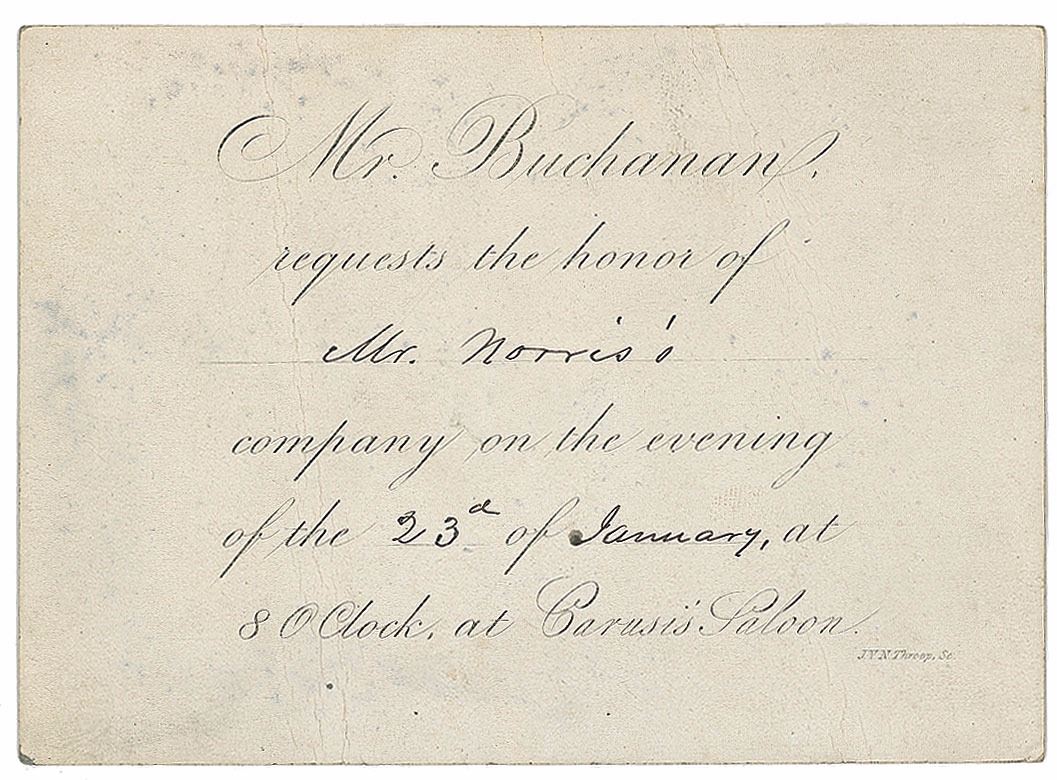 Mr. Buchanan,
requests the honor of
Mr. Norris's
company on the evening
of the 23d of January, at
8 O'Clock, at Carusi's Saloon.
J.V.N. Throop, Sc.